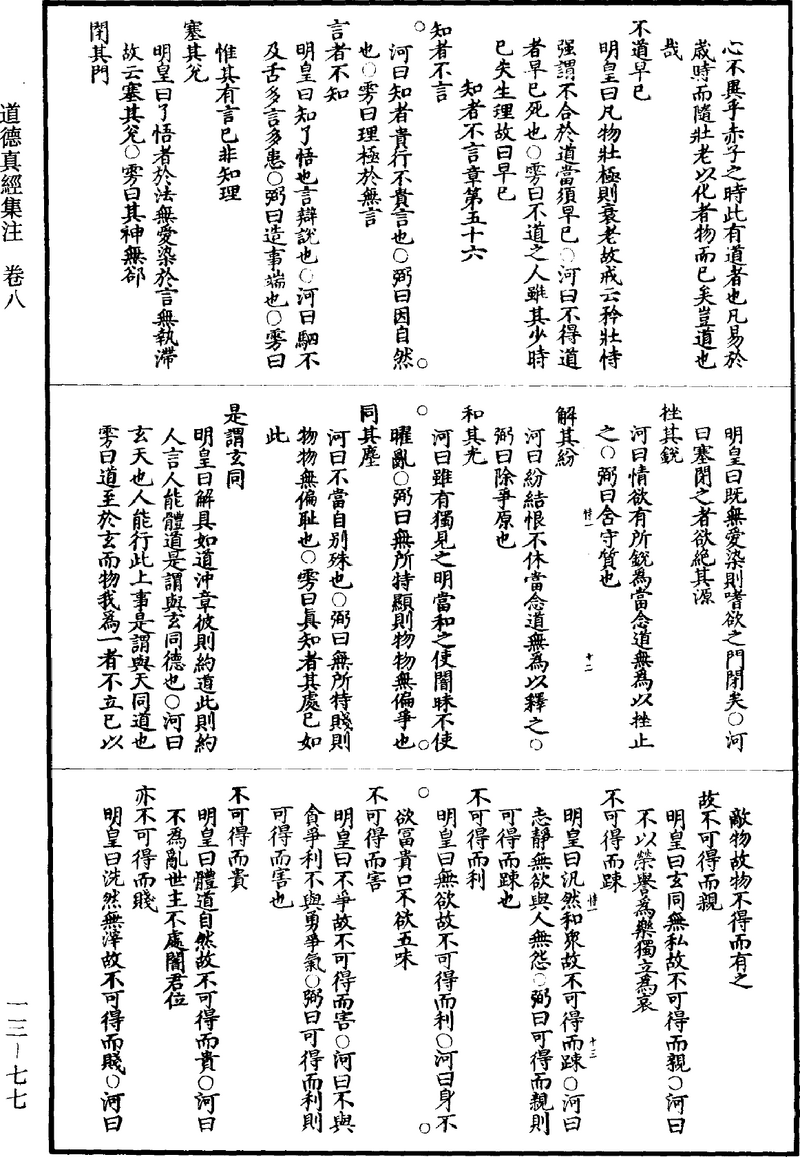 心不異乎赤子之時此有道者也凡易於
歲時而隨壯老以化者物而已矣豈道也
哉
不道早已
明皇曰凡物壯極則衰老故戒云矜壯恃
強謂不合於道當須早已○河曰不得道
者早已死也○雱曰不道之人雖其少時
已失生理故曰早已
知者不言章第五十六
知者不言
河曰知者貴行不貴言也○弼曰因自然
也○雱曰理極於無言
言者不知
明皇曰知了悟也言辯說也○河曰駟不
及舌多言多患○弼曰造事端也○雱曰
惟其有言已非知理
塞其兌
明皇曰了悟者於法無愛染於言無執滯
故云塞其兌○雱曰其神無郤
閉其門
明皇曰既無愛染則嗜欲之門閉矣○河
曰塞閉之者欲絕其源
挫其銳
河曰情欲有所銳為當念道無為以挫止
之○弼曰含守質也
解其紛
河曰紛結恨不休當念道無為以釋之○
弼曰除爭原也
和其光
河曰雖有獨見之明當和之使闇昧不使
曜亂○弼曰無所特顯則物物無偏爭也
同其塵
河曰不當自別殊也○弼曰無所特賤則
物物無偏恥也○雱曰真知者其處已如
此
是謂玄同
明皇曰解具如道沖章彼則約道此則約
人言人能體道是謂與玄同德也○河曰
玄天也人能行此上事是謂與天同道也
雱曰道至於玄而物我為一者不立已以
敵物故物不得而有之
故不可得而親
明皇曰玄同無私故不可得而親○河曰
不以榮譽為樂獨立為哀
不可得而踈
明皇曰汎然和衆故不可得而踈○河曰
志靜無欲與人無怨○弼曰可得而親則
可得而踈也
不可得而利
明皇曰無欲故不可得而利○河曰身不
欲冨貴口不欲五味
不可得而害
明皇曰不爭故不可得而害○河曰不與
貪爭利不與勇爭氣○弼曰可得而利則
可得而害也
不可得而貴
明皇曰體道自然故不可得而貴○河曰
不為亂世主不處闇君位
亦不可得而賤
明皇曰洗然無滓故不可得而賤○河曰
道德真經集注　卷八
一三－七七
十二
十三